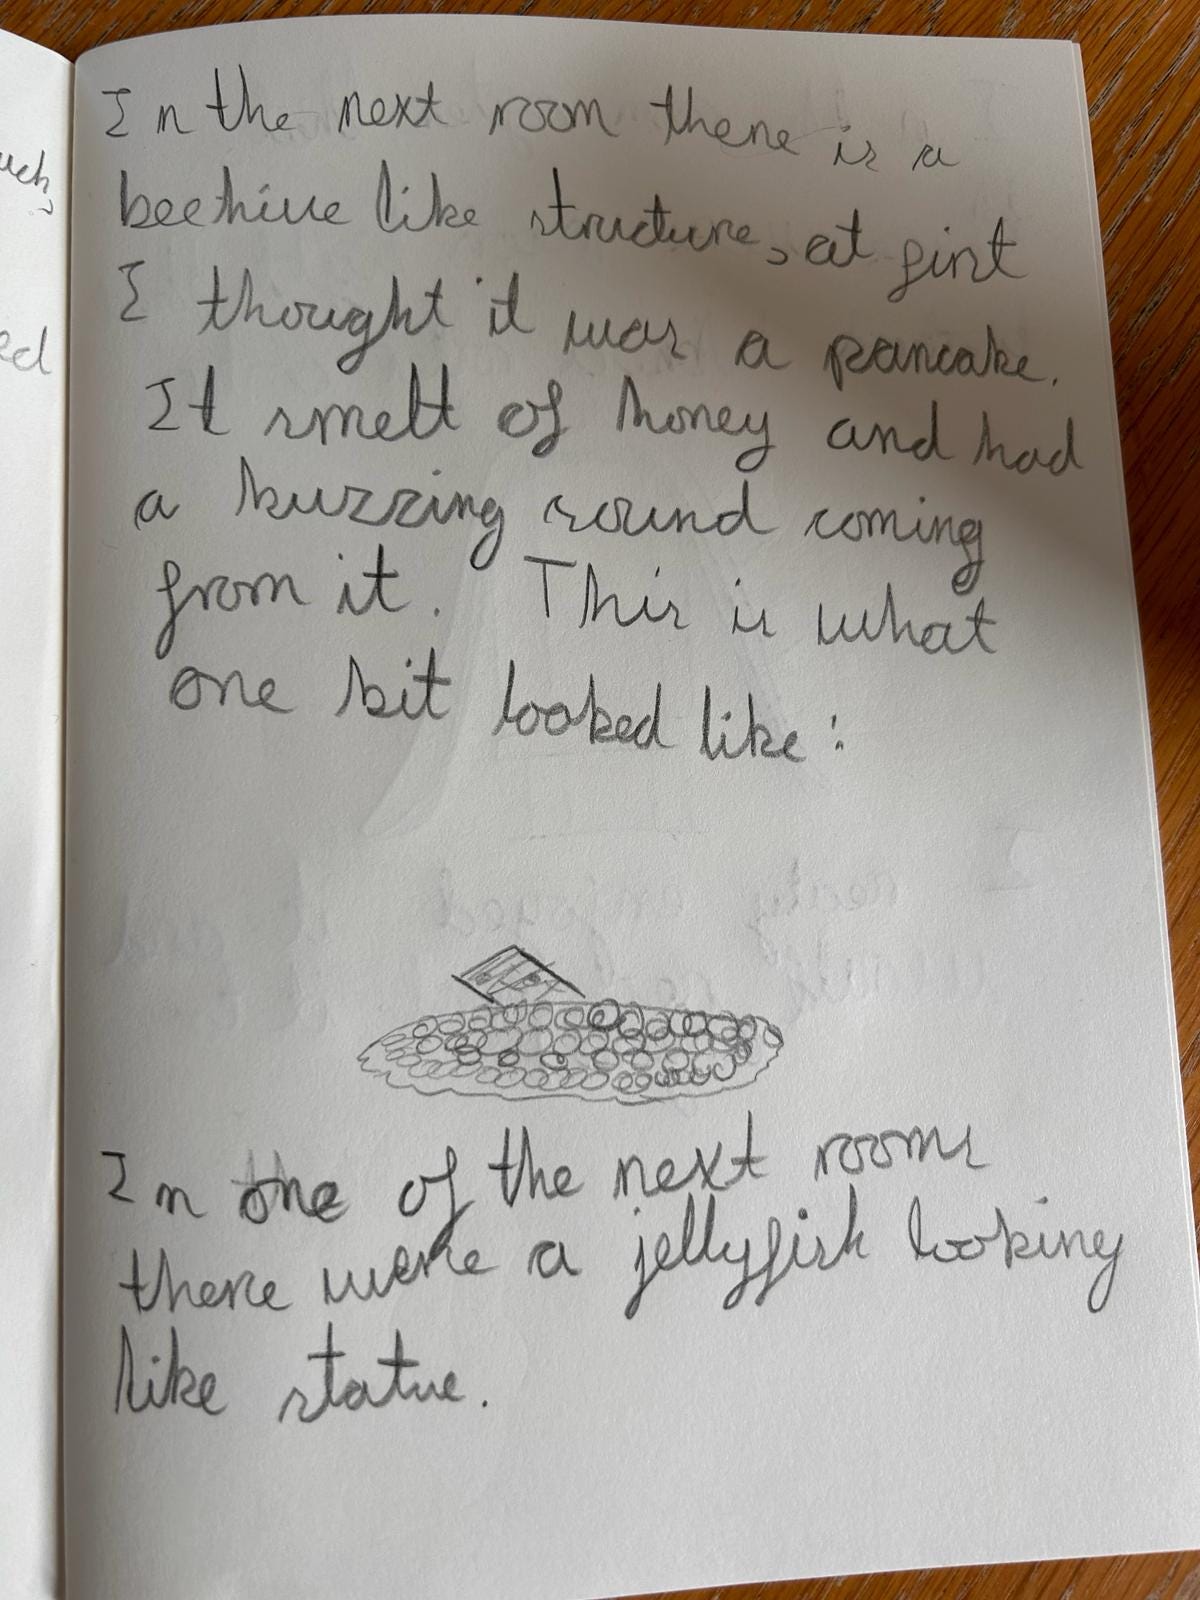 uch,
ed
In the next room there is a
beehive like structure, at first
I thought it was a pancake.
It smelt of honey and had
a buzzing sound coming
from it. This is what
one bit looked like:
In one of the next rooms
there were a jellyfish looking
like statue.